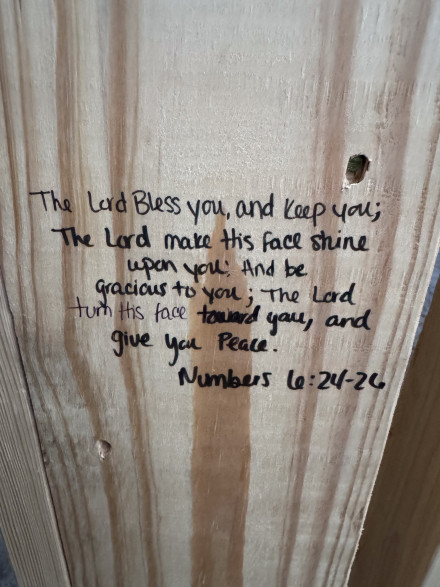 The Lord Bless you, and Keep you;
The Lord make His face shine
upon you; And be
gracious to you; The Lord
turn His face toward you, and
give you Peace.
Numbers 6:24-26